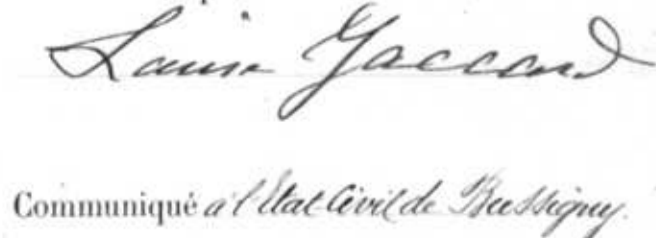 Louise Jaccard
Communiqué à l'Etat-Civil de Bussigny.